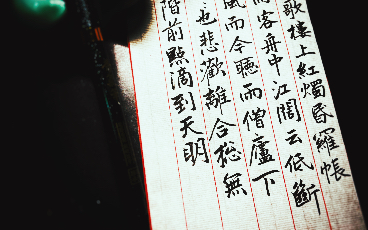 歌樓上紅燭昏羅帳
雨客舟中江闊云低斷
風而今聽雨僧廬下
也悲歡離合総無
階前點滴到天明